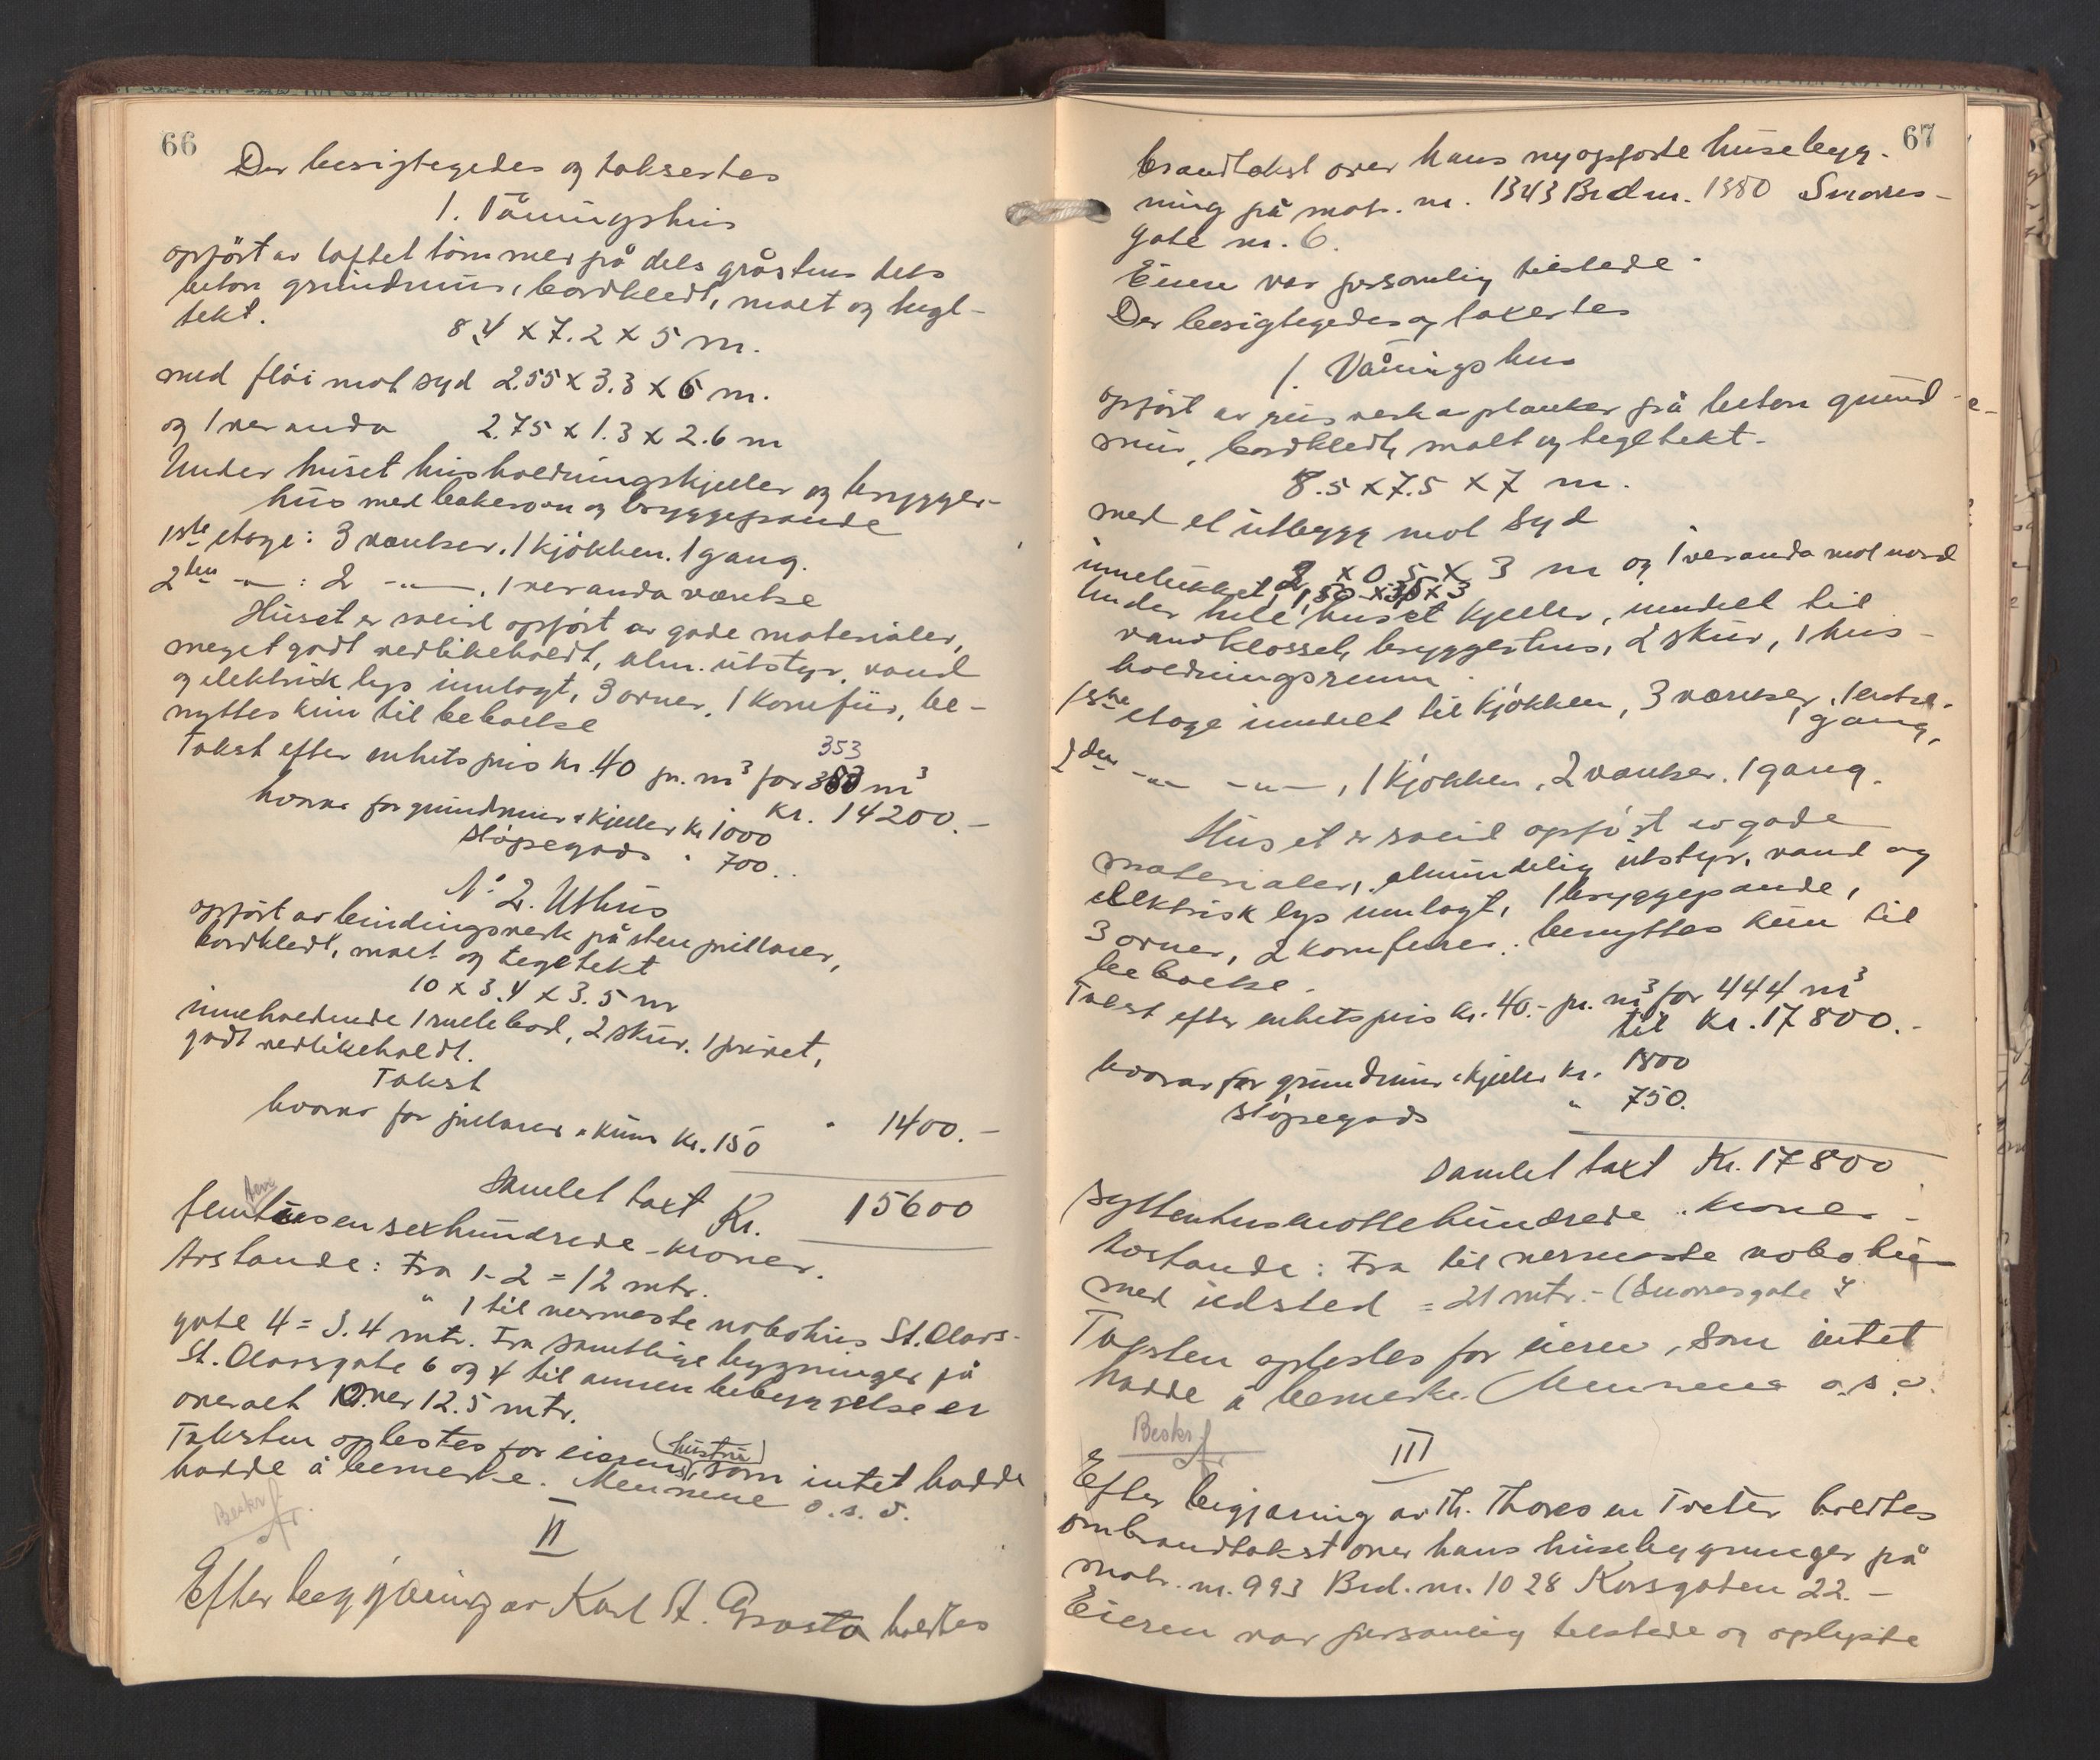 66
Der besigtegedes og taksertes
1. Våningshus
opfört av laftet tömmer på dels gråstens dels
beton grundmur, bordkledt, malt og tegl-
tekt.
8.4 x 7.2 x 5 m.
med flöi mot syd 2.55 x 3.3 x 6 m.
og 1 veranda 2.75 x 1.3 x 2.6 m
Under huset husholdningskjeller og brygger-
hus med bakerovn og bryggepande
1ste etage: 3 værelser. 1 kjökken. 1 gang.
2den -"- : 2 -"- . 1 veranda værelse
Huset er solid opfört av gode materialer,
meget godt vedlikeholdt, alm. utstyr, vand
og elektrisk lys innlagt, 3 ovner, 1 komfur, be-
nyttes kun til beboelse
Takst efter enhetspris kr. 40 pr. m³ for 353 m³
Kr. 14200.-
hvorav for grundmur & kjeller kr 1000
Stöpegods " 700..
No 2. Uthus
opfört av bindingsverk på sten pillarer,
bordkledt, malt og tegltekt
10 x 3.4 x 3.5 m
inneholdende 1 rullebod, 2 skur. 1 privet,
godt vedlikeholdt.
Takst
" 1400.-
hvorav for pillarer & kum Kr. 150
Samlet taxt Kr. 15600
femtentusen sexhundrede - kroner.
Avstande: Fra 1-2 = 12 mtr.
" 1 til nermeste nabohus St. Olavs-
gate 4 = 3.4 mtr. Fra samtlige bygninger på
St. Olavsgate 6 og 4 til annen bebyggelse er
overalt over 12.5 mtr.
Taksten oplestes for eierens (hustru), som intet hadde
hadde å bemerke. Mennene o.s.v.
Beskr.
II
Efter begjæring av Karl St. Grasta holdtes
67
brandtakst over hans nyopförte husebygg-
ning på matr. nr. 1343 Brdnr. 1380 Snorres-
gate nr. 6.
Eieren var personlig tilstede.
Der besigtegedes og taxertes
1. Våningshus
opfört av reisverk av planker på beton grund
mur, bordkledt, malt og tegltekt.
8.5 x 7.5 x 7 m.
med et utbygg mot syd
2 x 0.5 x 3 m og 1 veranda mot nord
innelukket, 1,50 x x 3
Under hele huset kjeller, inndelt til
vandklosset, bryggerhus, 2 skur, 1 hus-
holdningsrum.
1ste etage inndelt til kjökken, 3 værelser, 1 entre.
1 gang,
2den -"- -"- , 1 kjökken, 2 værelser. 1 gang.
Huset er solid opfört av gode
materialer, almindelig utstyr, vand og
elektrisk lys innlagt, 1 bryggepande,
3 ovner, 2 komfurer. benyttes kun til
beboelse.
Takst efter enhetspris kr. 40.- pr. m³ for 444 m³
til Kr. 17800.-
hvorav for grundmur & kjeller kr. 1800
stöpegods " 750.
Samlet taxt Kr. 17800
syttentusenottehundrede - kroner -
Avstande: Fra til nermeste nabohus
med ildsted = 21 mtr. - (Snorresgate 4
Taksten oplestes for eieren, som intet
hadde å bemerke. Mennene o.s.v.
Beskr.
III
Efter begjæring av Th. Thoresen Tveter holdtes
ombrandtakst over hans husebygninger på
matr. nr. 993 Brd. nr. 1028 Korsgaten 22.-
Eieren var personlig tilstede og oplyste